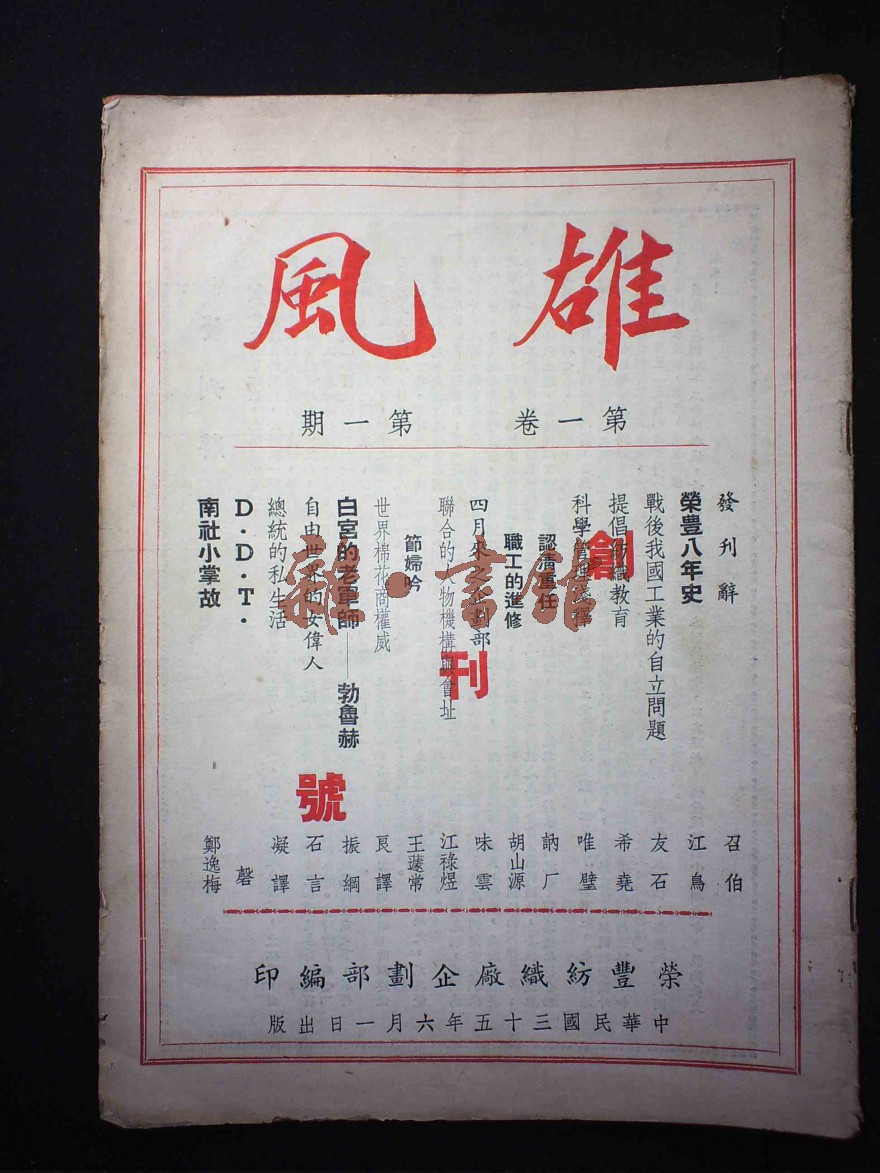 雄風
第一卷 第一期
創刊號
發刊辭 召伯
榮豊八年史 江鳥
戰後我國工業的自立問題 友石
提倡紡織教育 希堯
科學管理淺釋 唯壁
認清重任 訥厂
職工的進修 胡山源
四月來之企劃部 味雲
聯合的人物機構與會址 江祿煜
節婦吟 王蘧常
世界棉花商權威 良譯
白宮的老軍師——勃魯赫 振綱
自由世界的女偉人 石言
總統的私生活 凝譯
D·D·T· 磬
南社小掌故 鄭逸梅
榮豐紡織廠企劃部編印
中華民國三十五年六月一日出版